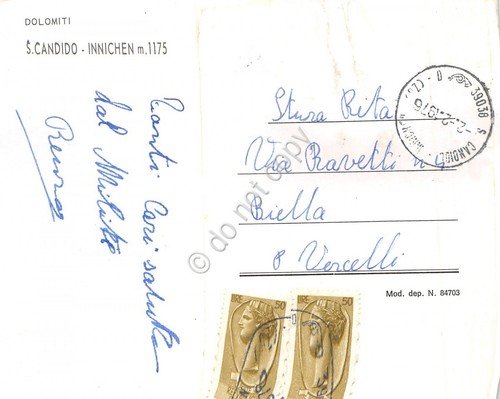 DOLOMITI
S.CANDIDO - INNICHEN m.1175
Tanti Cari saluti
dal
Stura Rita
Via Ravetti n 4
Biella
Vercelli
39038 S. CANDIDO
-2.-2.1976
Mod. dep. N. 84703
LIRE 50
LIRE 50
do not copy